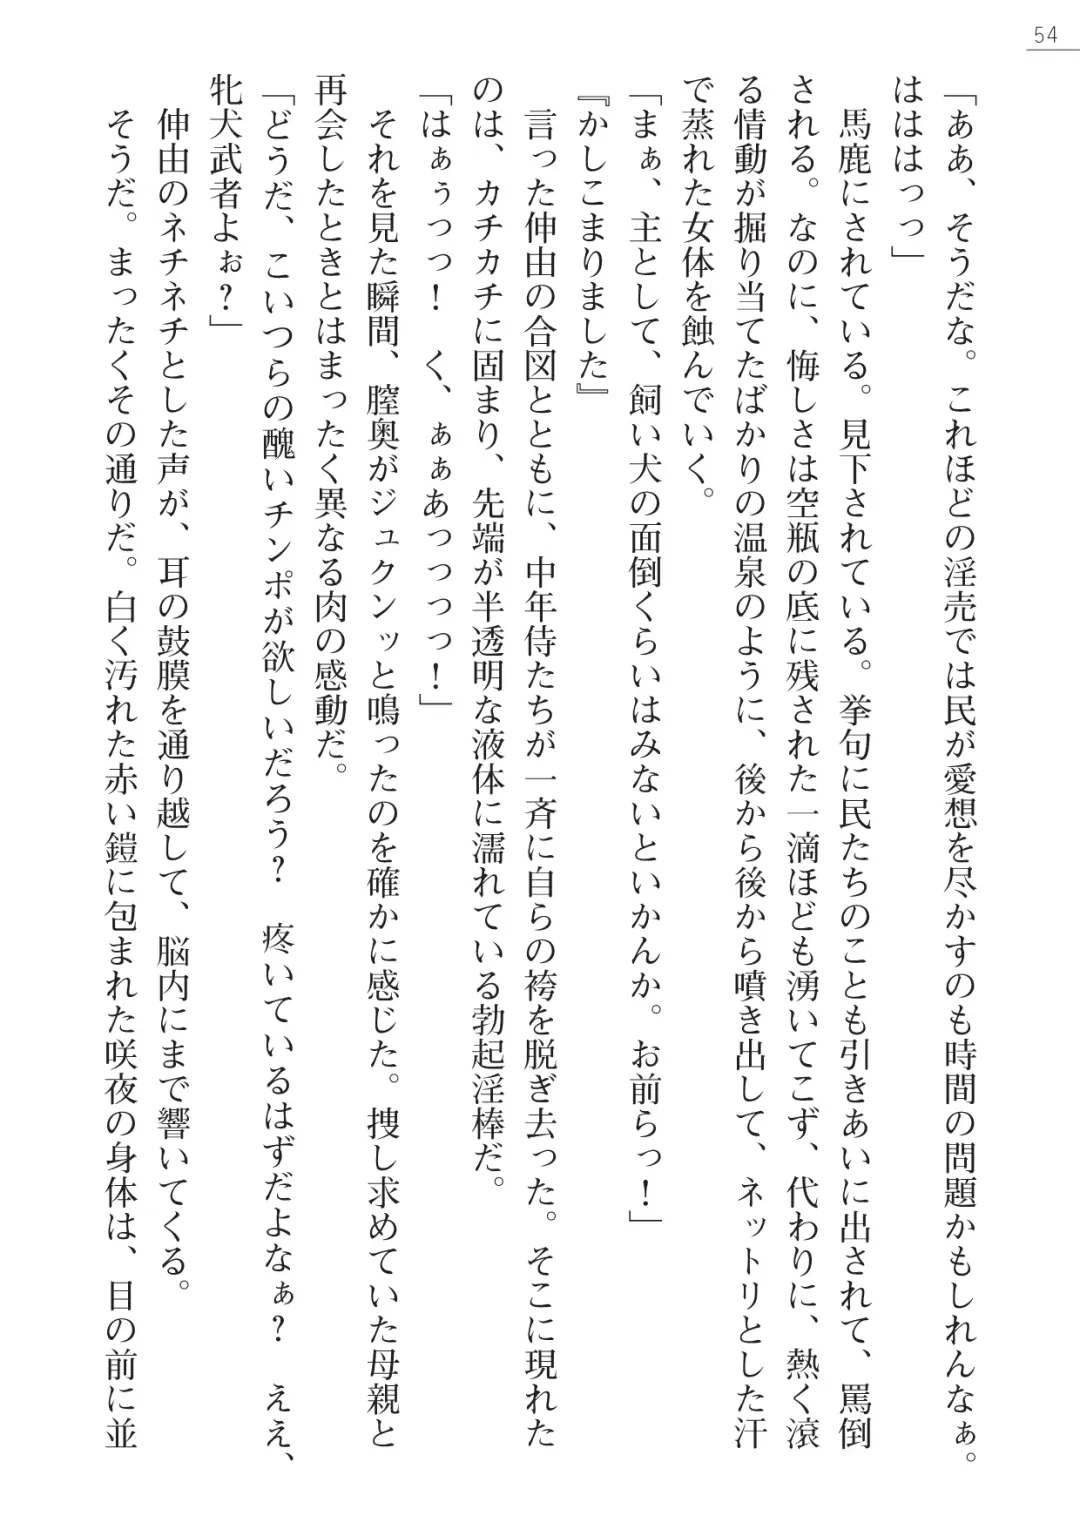 54
「ああ、そうだな。これほどの淫売では民が愛想を尽かすのも時間の問題かもしれんなぁ。
はははっっ」
　馬鹿にされている。見下されている。挙句に民たちのことも引きあいに出されて、罵倒
される。なのに、悔しさは空瓶の底に残された一滴ほども湧いてこず、代わりに、熱く滾
る情動が掘り当てたばかりの温泉のように、後から後から噴き出して、ネットリとした汗
で蒸れた女体を蝕んでいく。
「まぁ、主として、飼い犬の面倒くらいはみないといかんか。お前らっ！」
『かしこまりました』
　言った伸由の合図とともに、中年侍たちが一斉に自らの袴を脱ぎ去った。そこに現れた
のは、カチカチに固まり、先端が半透明な液体に濡れている勃起淫棒だ。
「はぁぅっっ！　く、ぁぁあっっっっ！」
　それを見た瞬間、膣奥がジュクンッと鳴ったのを確かに感じた。捜し求めていた母親と
再会したときとはまったく異なる肉の感動だ。
「どうだ、こいつらの醜いチンポが欲しいだろう？　疼いているはずだよなぁ？　ええ、
牝犬武者よぉ？」
　伸由のネチネチとした声が、耳の鼓膜を通り越して、脳内にまで響いてくる。
　そうだ。まったくその通りだ。白く汚れた赤い鎧に包まれた咲夜の身体は、目の前に並